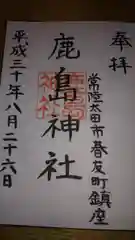 奉拝
常陸太田市春友町鎮座
鹿島神社
平成三十年八月二十六日